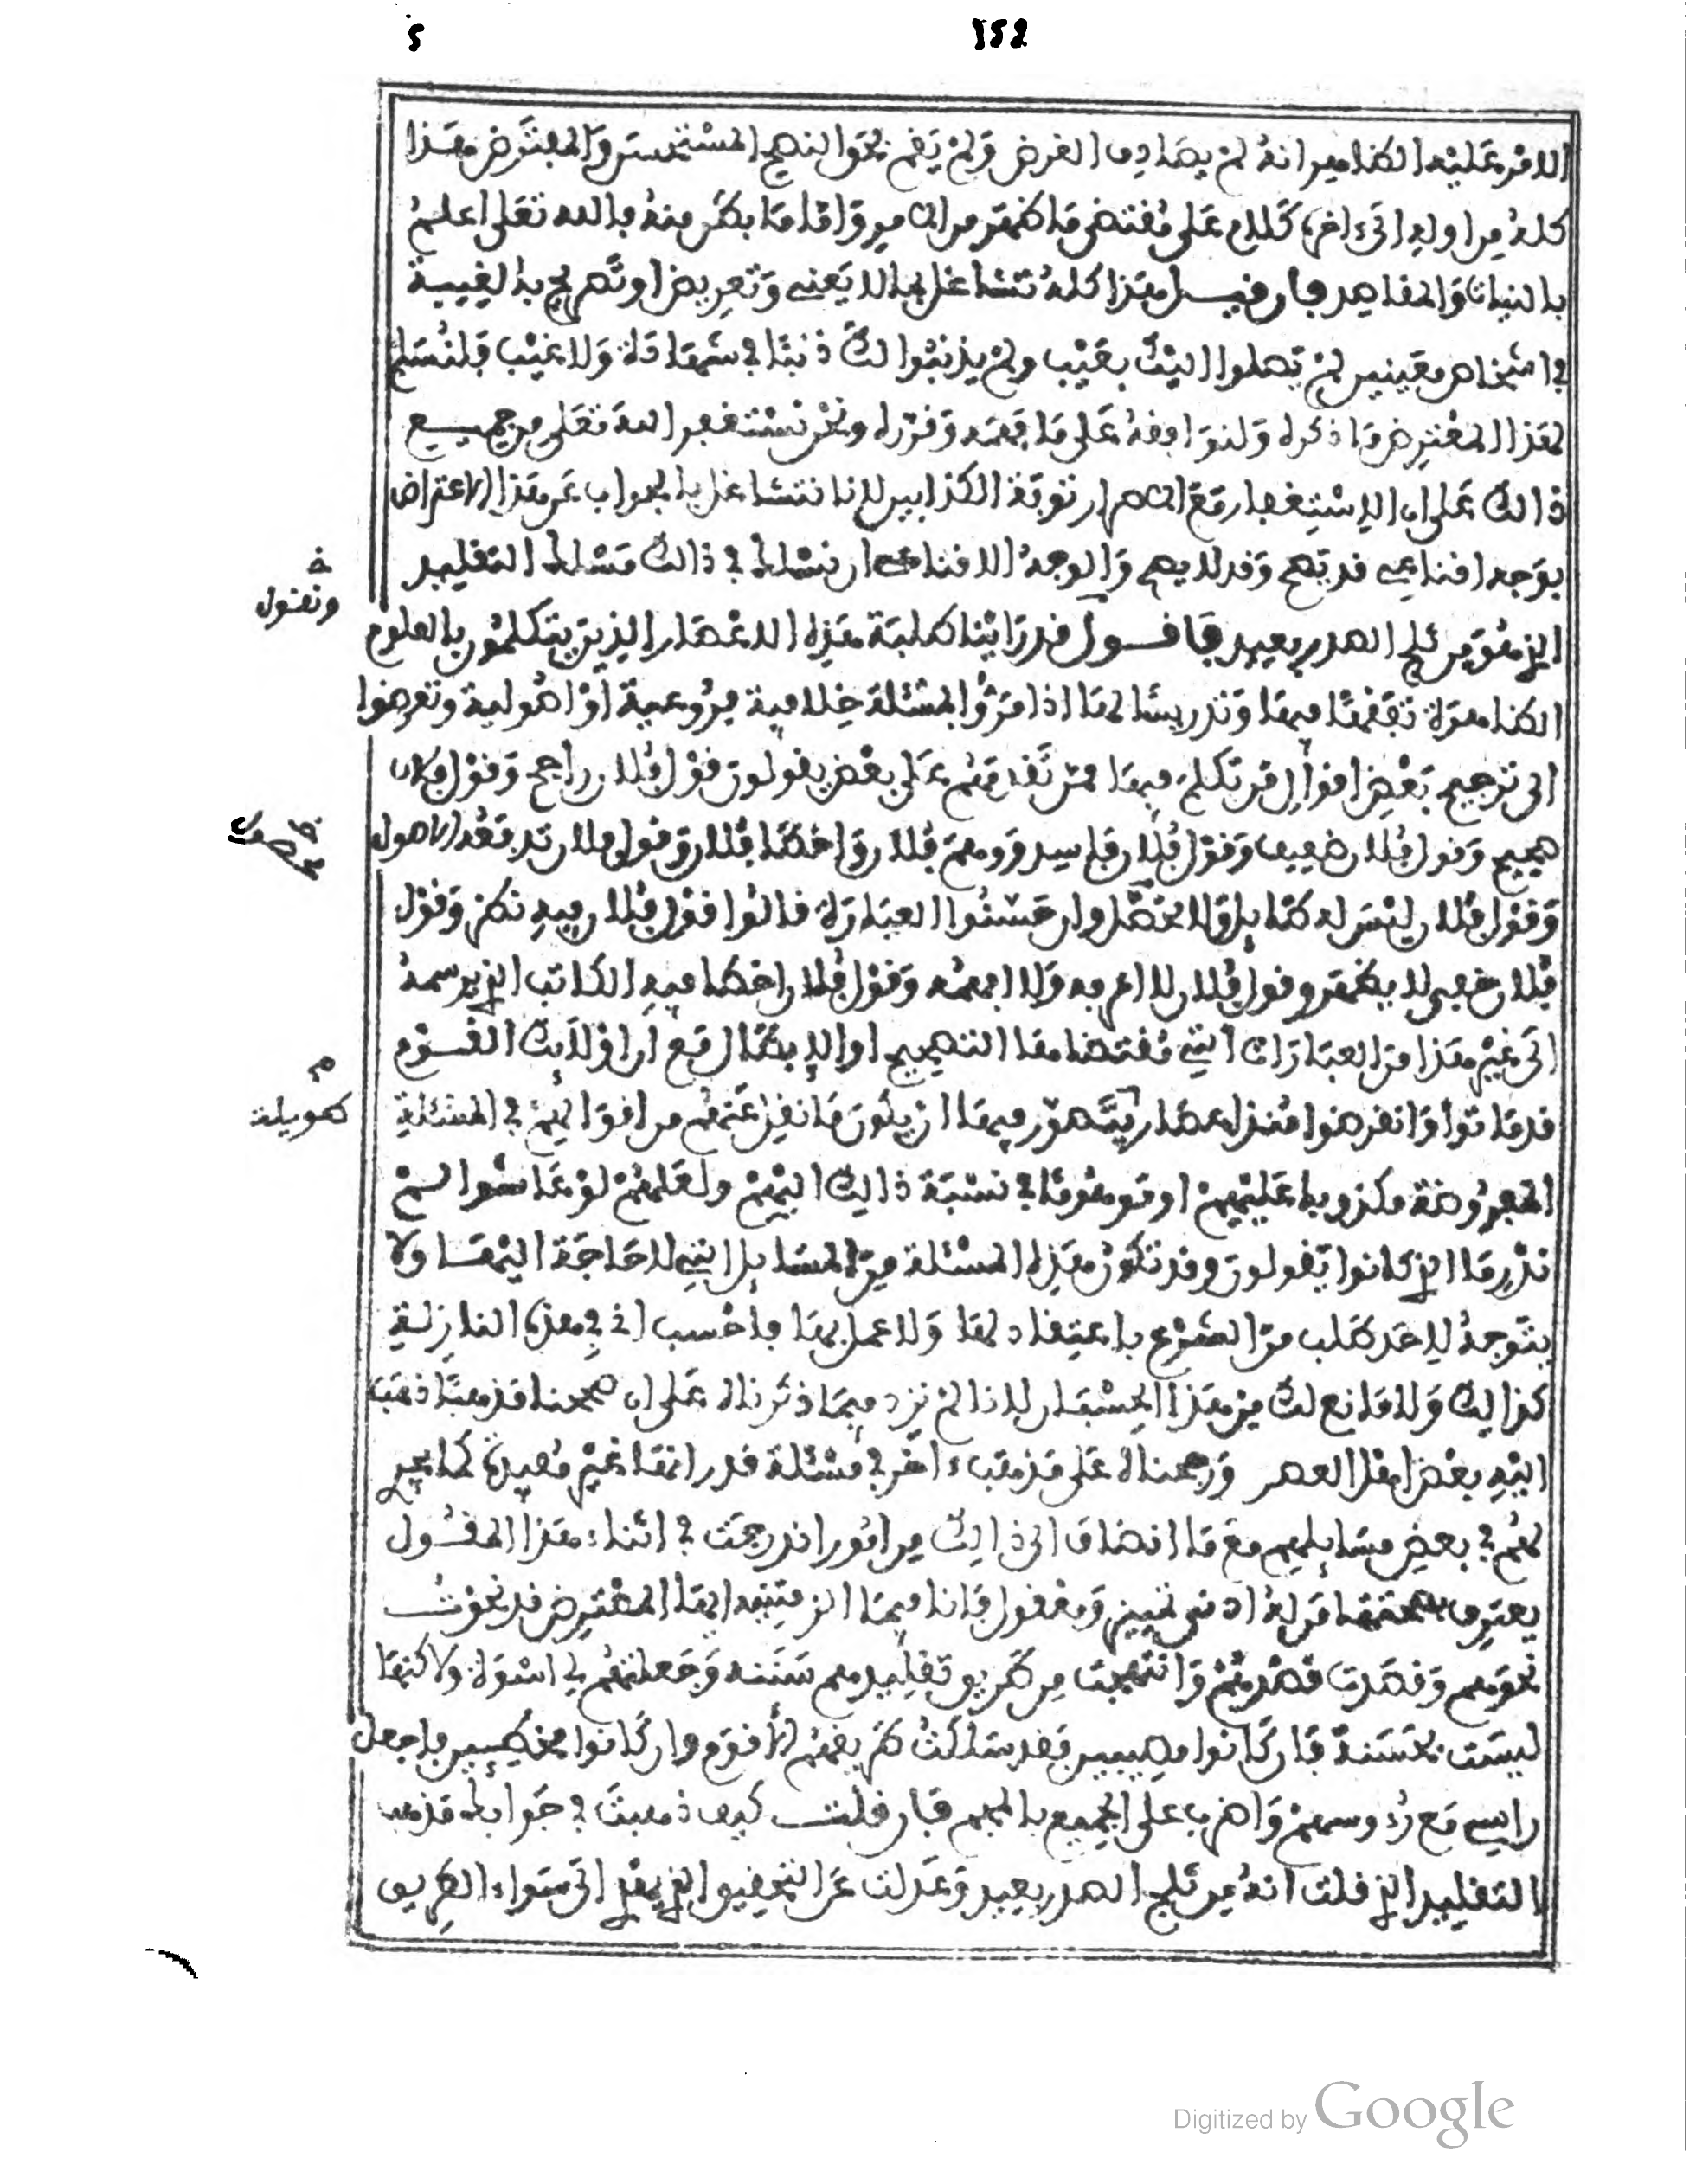 5 152
الامر عليه الظاهر انه لم يصادف الغرض ولم يقم نحو النهج المستحسن والمفترض هذا
كله من اوله الى اخره كلام على مقتضى ما ظهر من واما ما بطن منه بالله تعلى اعلم
بالنيات والمقاصد فان قيل هذا كله تشاغل بما لا يعنى وتعريض او تصريح بالغيبة
في اشخاص معينين لم يصلوا اليك بعيب ولم يذنبوا لك ذنبا في شهادة ولا غيب قلنسلم
لهذا المعترض ما ذكره ولنوافقه على ما فهمه وقرره ونحن نستغفر الله تعلى من جميع
ذالك على ان الاستغفار مع الاصرار توبة الكذابين لانا نتشاغل بالجواب عن هذا الاعتراض
بوجه اقناعي قد يصح وقد لا يصح والوجه الاقناعي ان نسلك في ذالك مسلك التقليد
ونقول
الذي هو من ثلج الصدر بعيد فاقول قد راينا طلبة هذه الاعصار الذين يتكلمون بالعلوم
الظاهرة تفقها فيها وتدريسا لها اذا مروا بمسئلة خلافية فروعية او اصولية وتعرضوا
الى ترجيح بعض اقوال من تكلم فيها ممن تقدمهم على بعض يقولون قول فلان راجح وقول فلان
صحيح وقول فلان ضعيف وقول فلان فاسد ووهم فلان واخطا فلان وقول فلان ترده الاصول
وقول فلان ليس له طايل ولا محصل وان حسنوا العبارة قالوا قول فلان فيه نظر وقول
فلان خفي لا يظهر وقول فلان لا اعرفه ولا افهمه وقول فلان اخطا فيه الكاتب الذي رسمه
الى غير هذا من العبارات التي مقتضاها التصحيح او الابطال مع ان اولايك القوم
قد ماتوا وانقرضوا منذ اعصار يتصور فيها ان يكون ما نقل عنهم من اقوالهم في المسئلة
طويلة
المفروضة مكذوبا عليهم او موهوما في نسبة ذالك اليهم ولعلهم لو عاشوا لم
ندر ما الذي كانوا يقولون وقد تكون هذه المسئلة من المسايل التي لا حاجة اليها ولا
يتوجه لاحد طلب من الشرع باعتقاد لها ولا عمل بها فاحسب اني في هذه النازلة
كذالك ولا مانع لك من هذا الحسبان لانا لم نزد فيما ذكرناه على ان صححنا مذهبا ذهب
اليه بعض اهل العصر ورجحناه على مذهب اخر في مسئلة قدر انها غير مفيدة كما يجري
لهم في بعض مسايلهم مع ما انضاف الى ذالك من امور اندرجت في اثناء هذا المقول
يعترف بصحتها من له ادنى تمييز ومعقول فانا فيما الزمتنيه ايها المعترض قد نحوت
نحوهم وقصدت قصدهم وانتهجت من طريق تقليدهم سننه وجعلتهم لي اسوة ولاكنها
ليست بحسنة فان كانوا مصيبين فقد سلكت طريقهم الاقوم وان كانوا مخطيين فاجعل
راسي مع رءوسهم واضرب على الجميع بالمجم فان قلت كيف ذهبت في جوابك مذهب
التقليد الذي قلت انه من ثلج الصدر بعيد وعدلت عن التحقيق الذي يهدي الى سواء الطريق
Digitized by Google